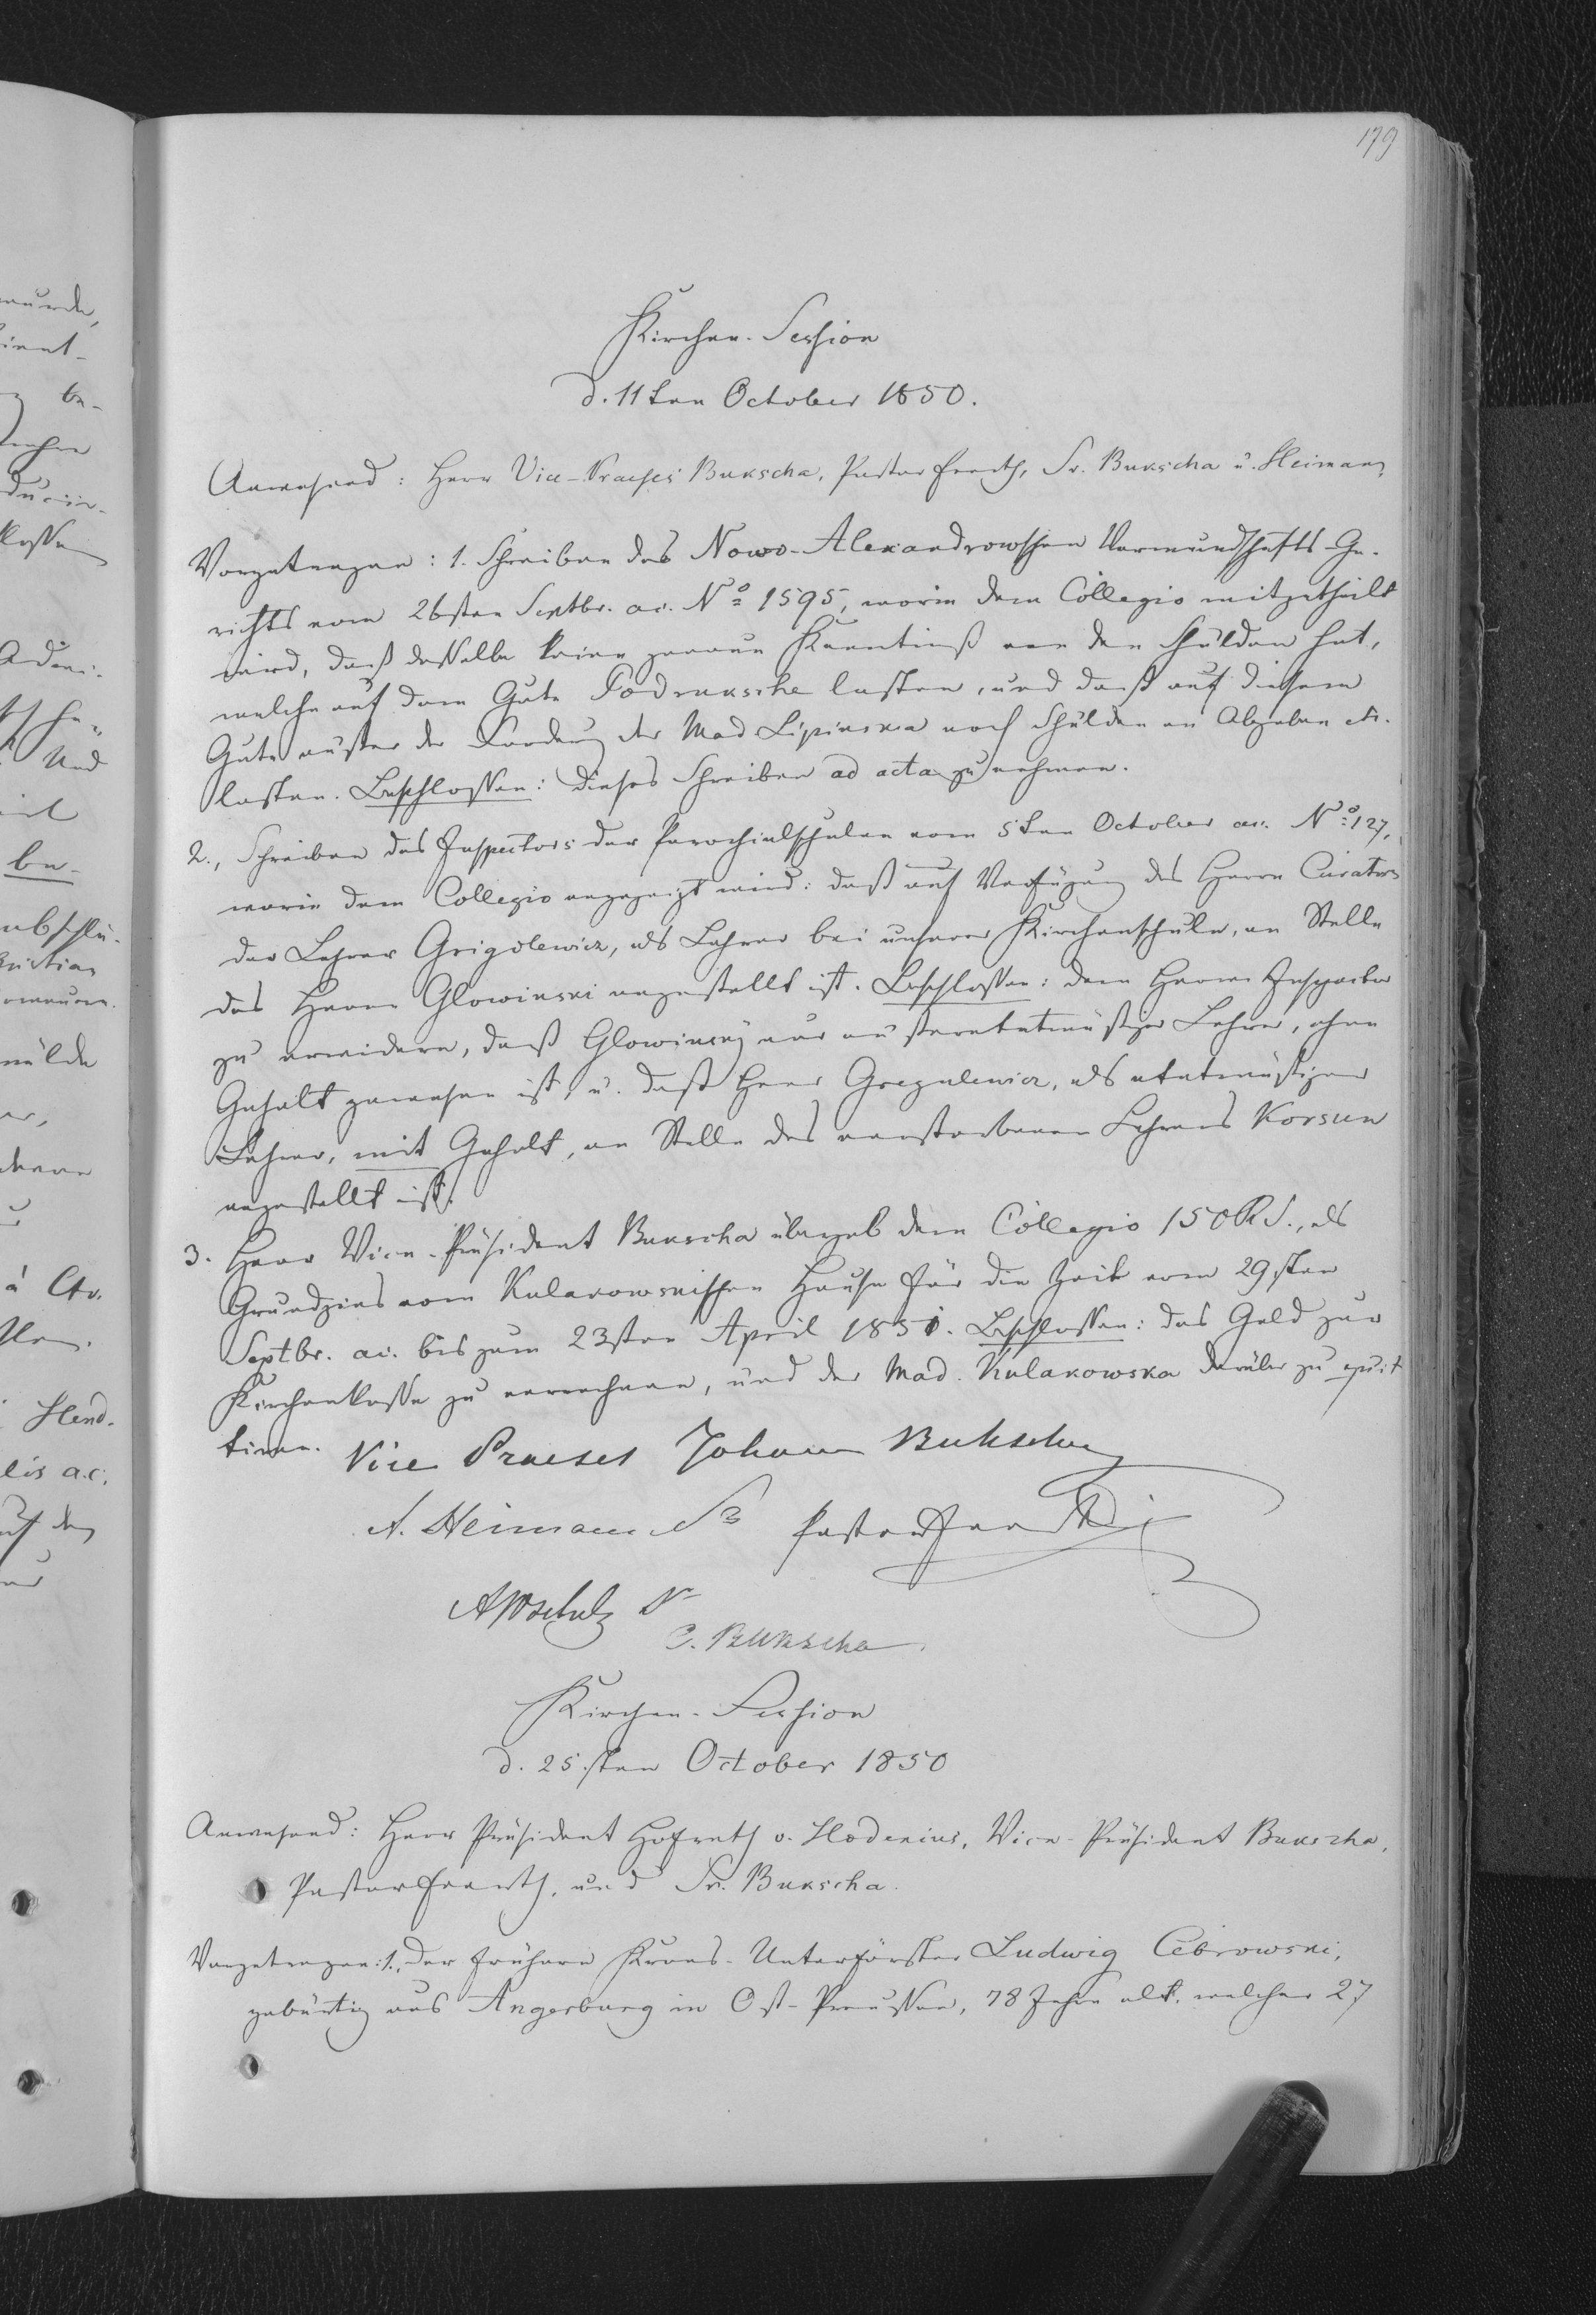 179
Kirchen-Session
d. 11ten October 1850.
Anwesend: Herr Vice-Praeses Bukscha, Pastor Fraeth, Sr. Bukscha u. Heimann
Vorgetragen: 1. Schreiben des Nowo-Alexandrowschen Vormundschafts-Ge-
richts vom 26sten Septbr. ac. No 1595, worin dem Collegio mitgetheilt
wird, daß dasselbe keine genaue Kenntniß von den Schulden hat,
welche auf dem Gute Podruksche lasten, und daß auf diesem
Gute außer der Forderung der Mad Lipinska noch Schulden an Abgaben etc.
lasten. Beschlossen: dieses Schreiben ad acta zu nehmen.
2., Schreiben des Inspectors der Parochialschulen vom 5ten October ac. No 127,
worin dem Collegio angezeigt wird: daß auf Verfügung des Herrn Curators
der Lehrer Grigolewicz, als Lehrer bei unserer Kirchenschule, an Stelle
des Herrn Glowinski angestellt ist. Beschlossen: dem Herrn Inspector
zu erwidern, daß Glowinsky nur außeretatmäßiger Lehrer, ohne
Gehalt gewesen ist, u. daß Herr Gregulewicz, als etatmäßiger
Lehrer, mit Gehalt, an Stelle des verstorbenen Lehrers Korsun
angestellt ist.
3. Herr Vice-Präsident Bukscha übergab dem Collegio 150 RS., als
Grundzins vom Kulakowskischen Hause für die Zeit vom 29sten
Septbr. ac. bis zum 23sten April 1851. Beschlossen: das Geld zur
Kirchenkasse zu verrechnen, und der Mad. Kulakowska darüber zu quit
tiren. Vice Praeses Johann Bukscha
A. Heimann Sr Pastor
A W Schulz Sr
C. Bukscha
Kirchen-Session
d. 25.sten October 1850
Anwesend: Herr Präsident Hofrath v. Hodenius, Vice-Präsident Bukscha,
Pastor Fraeth, und Sr. Bukscha.
Vorgetragen: 1., Der frühere Krons-Unterförster Ludwig Cebrowski,
gebürtig aus Angerburg in Ost-Preussen, 78 Jahr alt, welcher 27